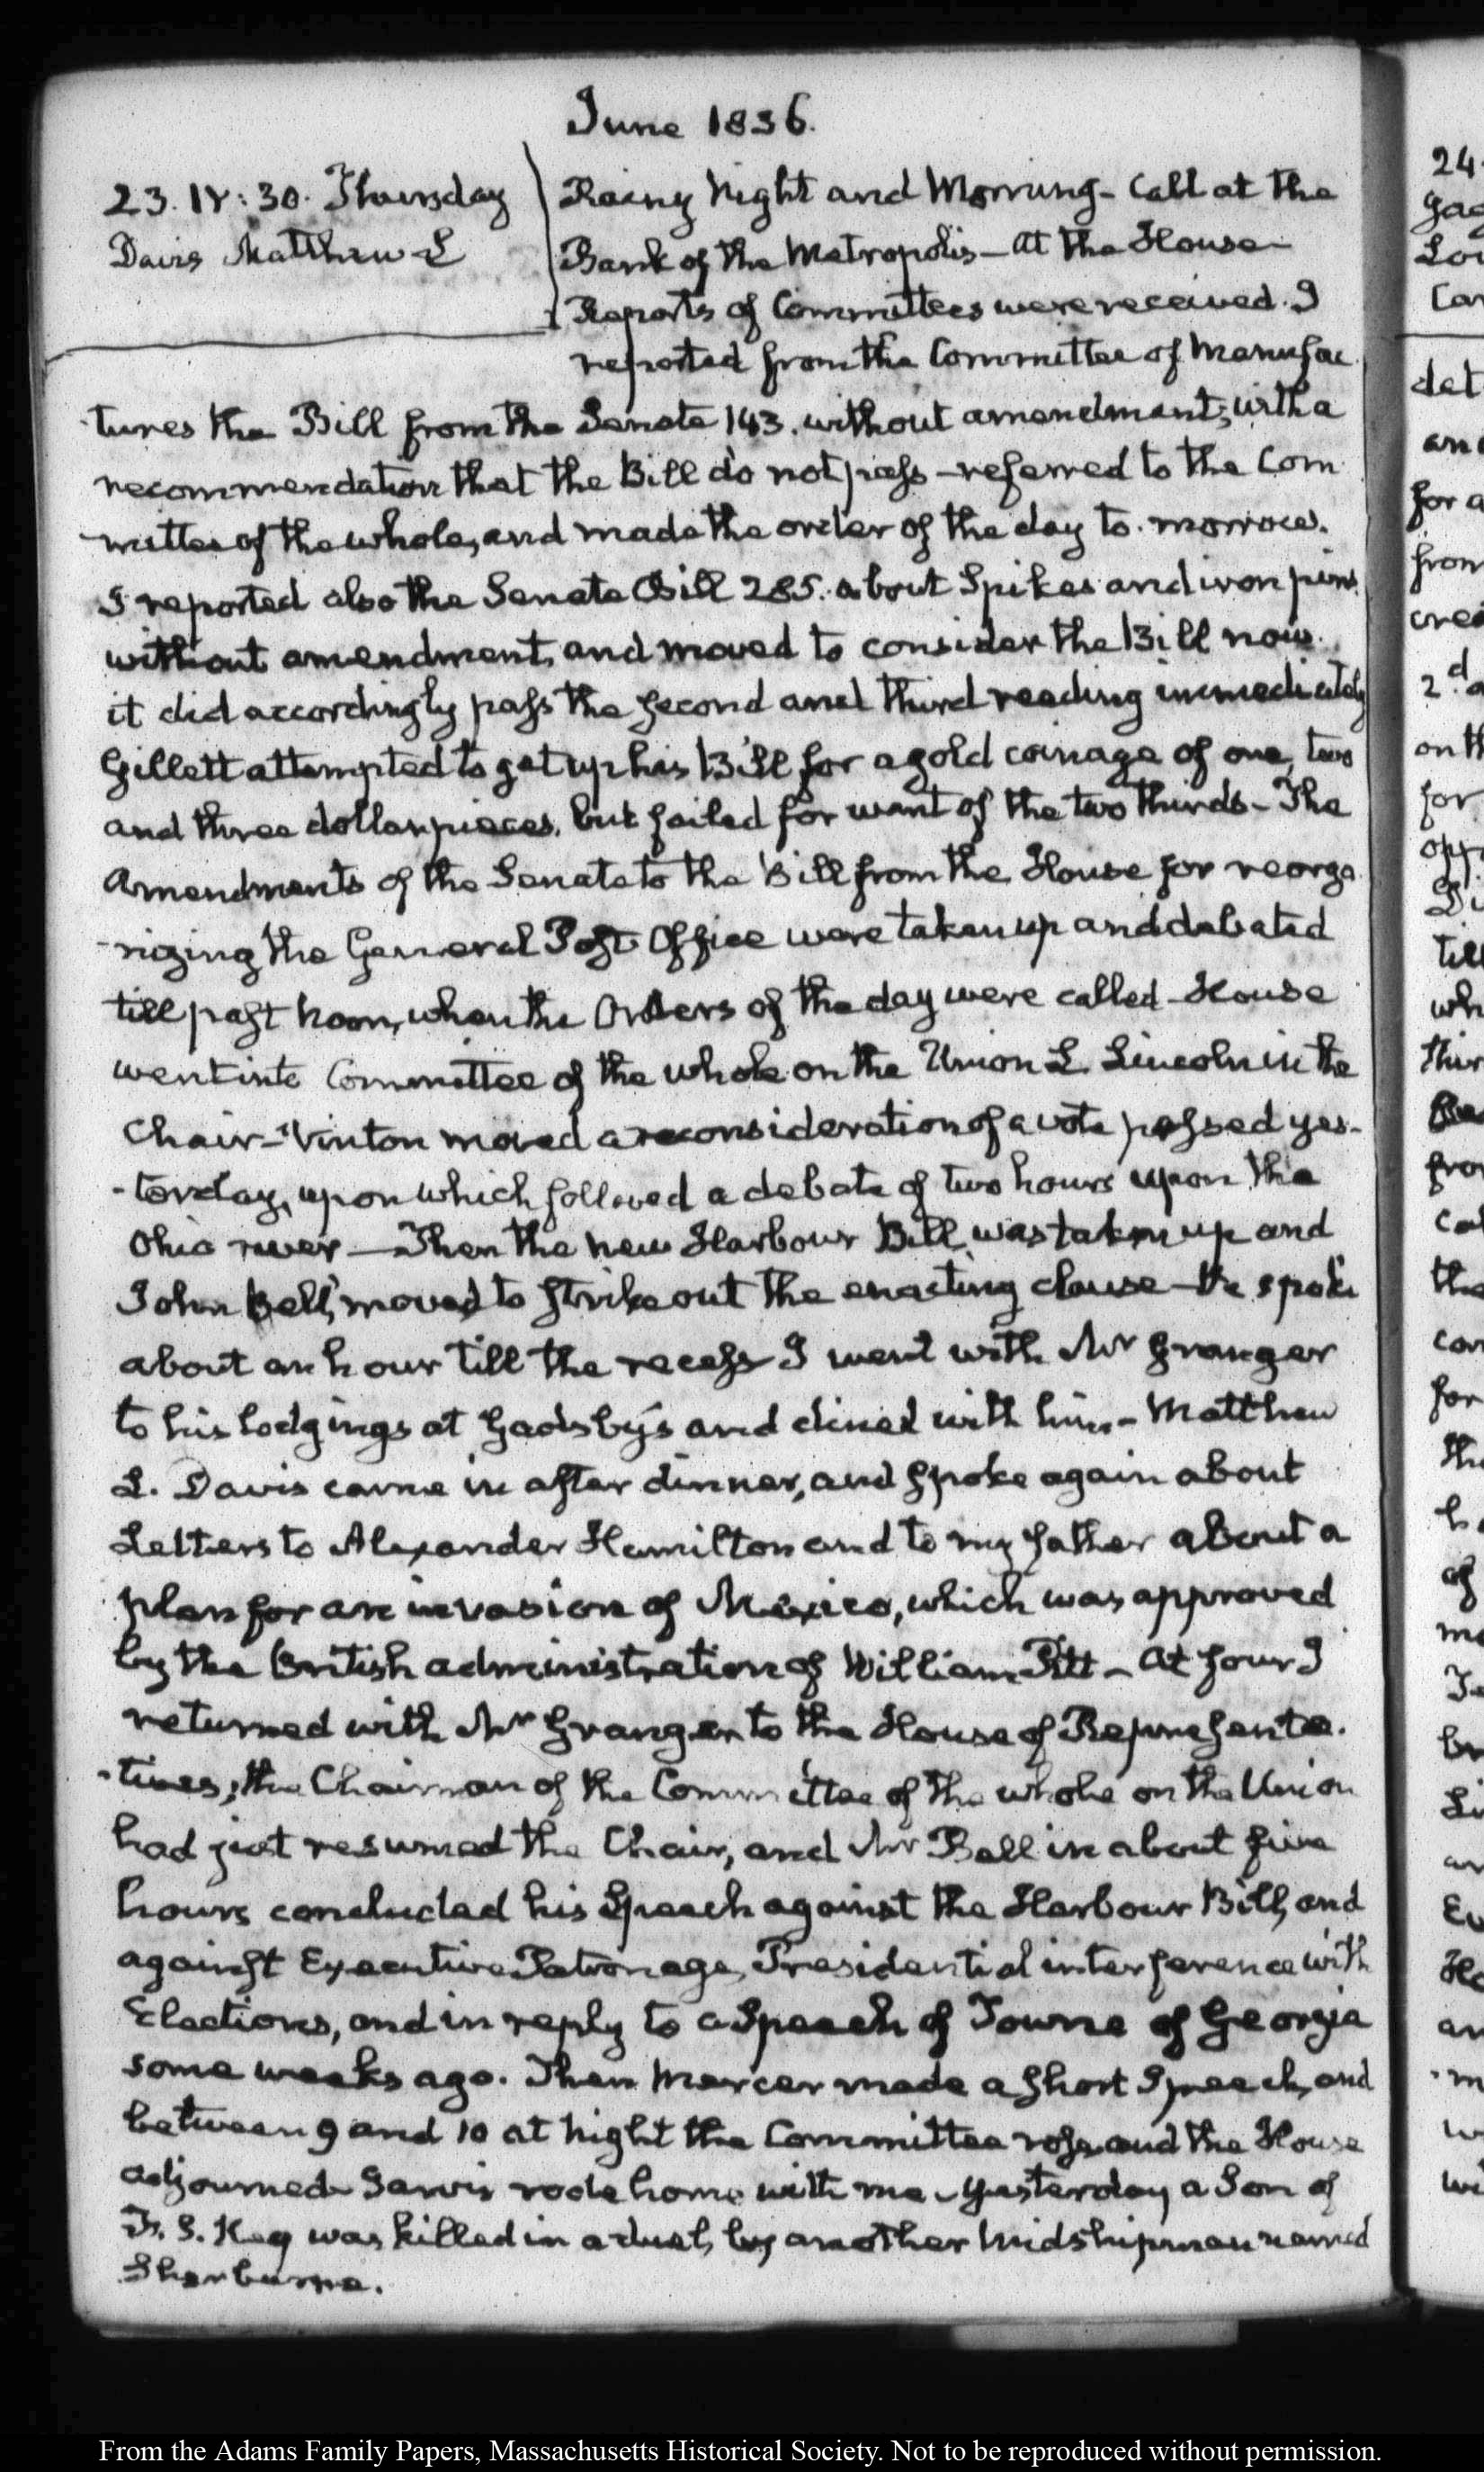 June 1836.
23. IV: 30. Thursday
Davis Matthew L
Rainy Night and Morning - Call at the
Bank of the Metropolis - At the House
Reports of Committees were received. I
reported from the Committee of Manufac
-tures the Bill from the Senate 143. without amendment, with a
recommendation that the Bill do not pass - referred to the Com
-mittee of the whole, and made the order of the day to-morrow.
I reported also the Senate Bill 285. about Spikes and iron pins
without amendment, and moved to consider the Bill now.
it did accordingly pass the second and third reading immediately
Gillett attempted to get up his Bill for a gold coinage of one, two
and three dollar pieces, but failed for want of the two thirds - The
Amendments of the Senate to the Bill from the House for reorga
-nizing the General Post Office were taken up and debated
till past Noon, when the Orders of the day were called - House
went into Committee of the whole on the Union L. Lincoln in the
Chair - Vinton moved a reconsideration of a vote passed yes-
-terday, upon which followed a debate of two hours upon the
Ohio river - Then the new Harbour Bill was taken up and
John Bell, moved to strike out the enacting clause - He spoke
about an hour till the recess I went with Mr Granger
to his lodgings at Gadsby's and dined with him - Matthew
L. Davis came in after dinner, and spoke again about
Letters to Alexander Hamilton and to my father about a
plan for an invasion of Mexico, which was approved
by the British administration of William Pitt - At four I
returned with Mr Granger to the House of Representa.
-tives; the Chairman of the Committee of the whole on the Union
had just resumed the Chair, and Mr Bell in about five
hours concluded his Speech against the Harbour Bill, and
against Executive Patronage, Presidential interference with
Elections, and in reply to a Speech of Towns of Georgia
some weeks ago. Then Mercer made a short Speech, and
between 9 and 10 at Night the Committee rose and the House
adjourned. Jarvis rode home with me - Yesterday a Son of
F. S. Key was killed in a duel, by another Midshipman named
Sherburne.
24
for a
2d
From the Adams Family Papers, Massachusetts Historical Society. Not to be reproduced without permission.